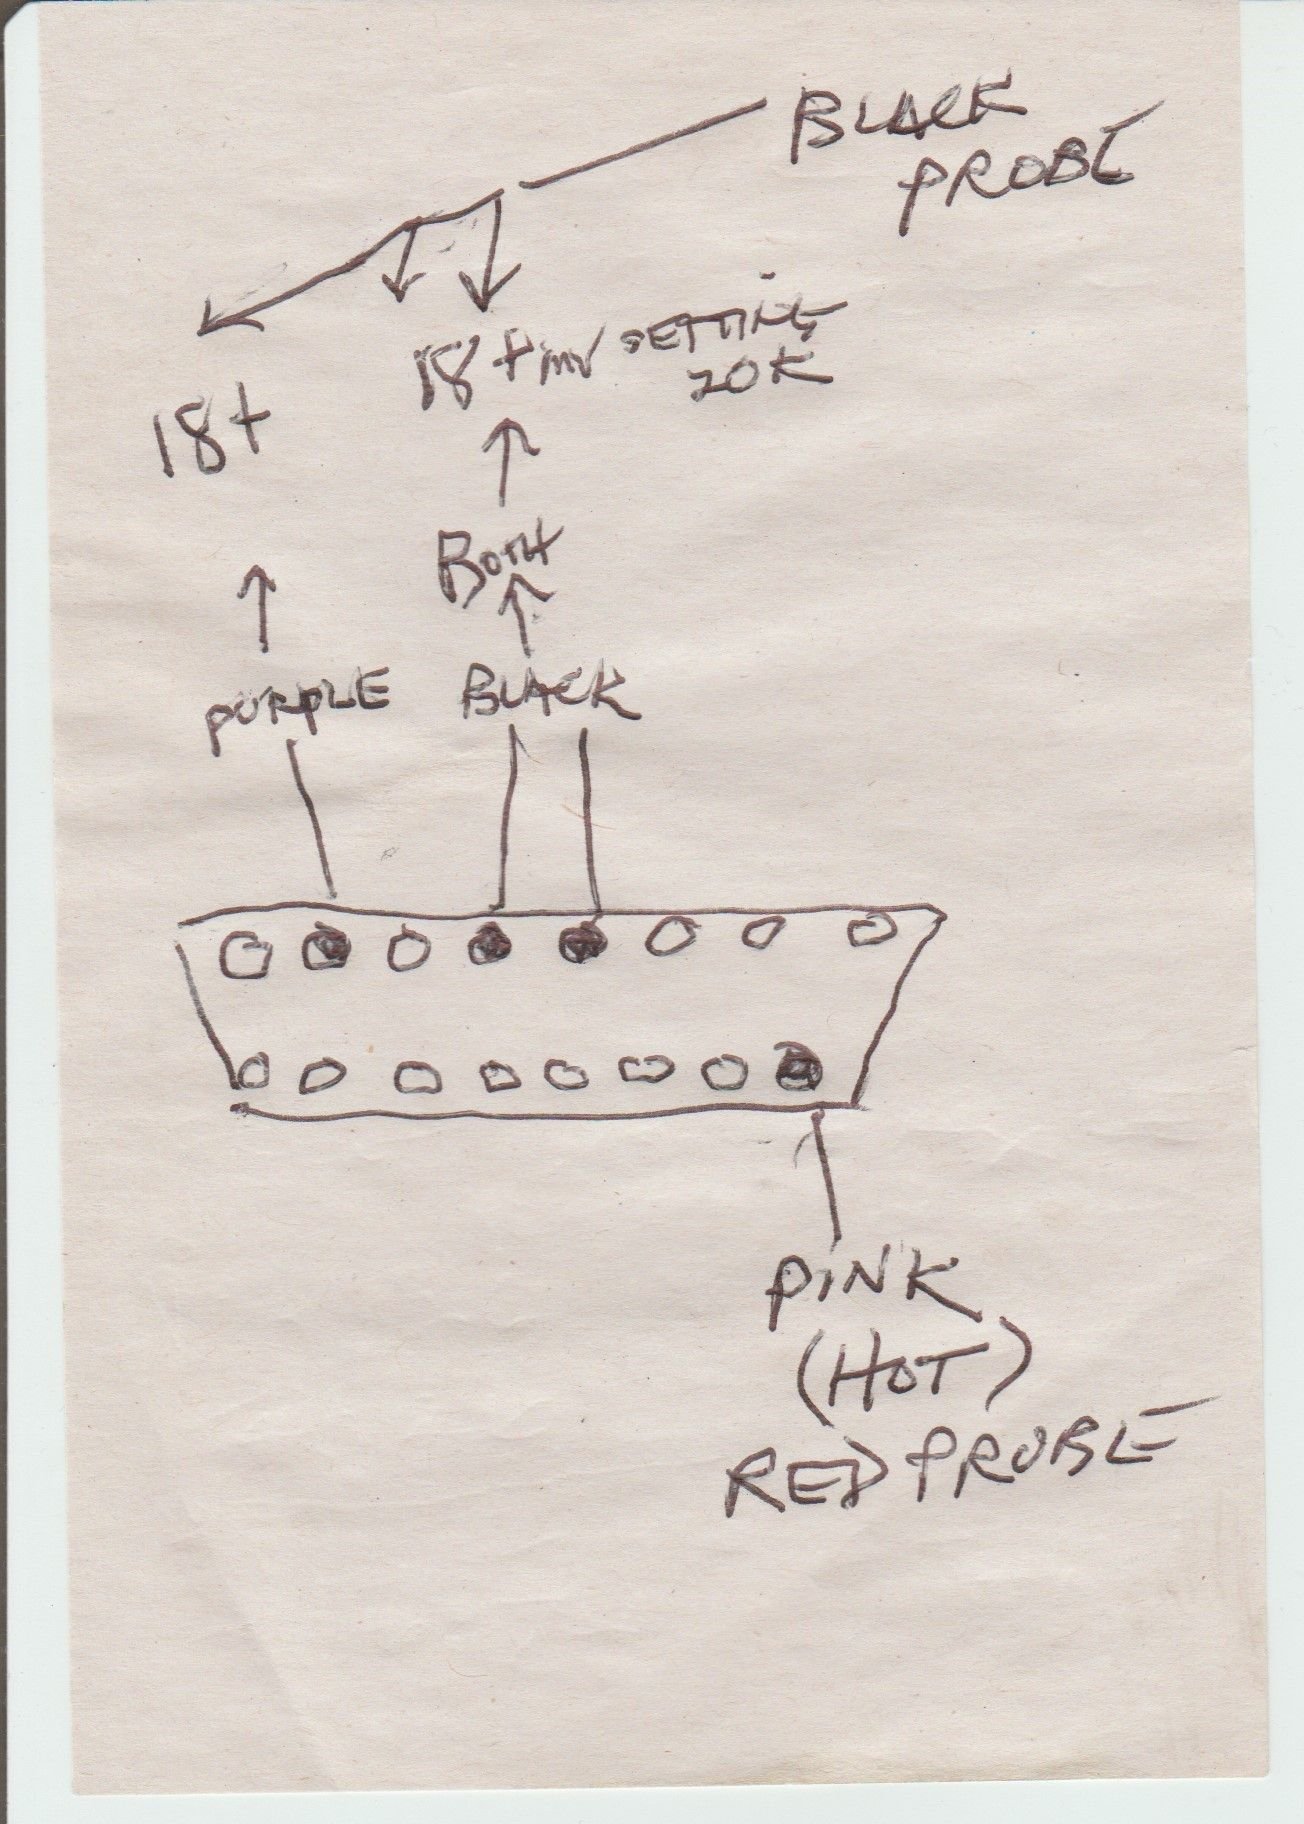 BLACK
PROBE
18+ mv SETTING
20K
18+
BOTH
PURPLE BLACK
PINK
(HOT)
RED PROBE